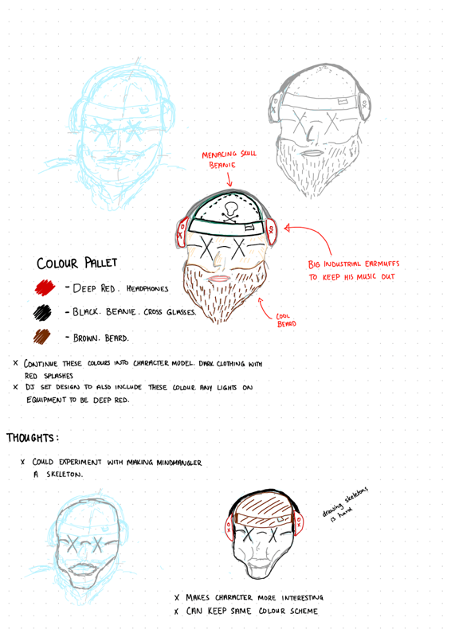 MENACING SKULL
BEANIE
BIG INDUSTRIAL EARMUFFS
TO KEEP HIS MUSIC OUT
COOL
BEARD
COLOUR PALLET
- DEEP RED. HEADPHONES
- BLACK. BEANIE. CROSS GLASSES.
- BROWN. BEARD.
X CONTINUE THESE COLOURS INTO CHARACTER MODEL. DARK CLOTHING WITH
RED SPLASHES
X DJ SET DESIGN TO ALSO INCLUDE THESE COLOUR ANY LIGHTS ON
EQUIPMENT TO BE DEEP RED.
THOUGHTS:
X COULD EXPERIMENT WITH MAKING MINDMANGLER
A SKELETON.
drawing skeletons
is hard
X MAKES CHARACTER MORE INTERESTING
X CAN KEEP SAME COLOUR SCHEME